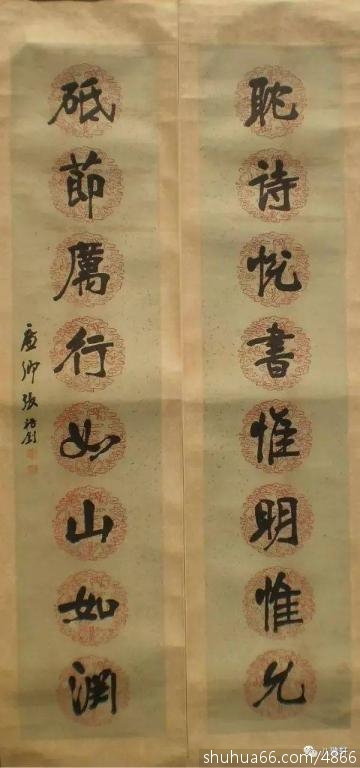 耽诗悦書惟明惟允
砥節厲行如山如渊
廉卿張裕釗
八雅轩
shuhua66.com/4866